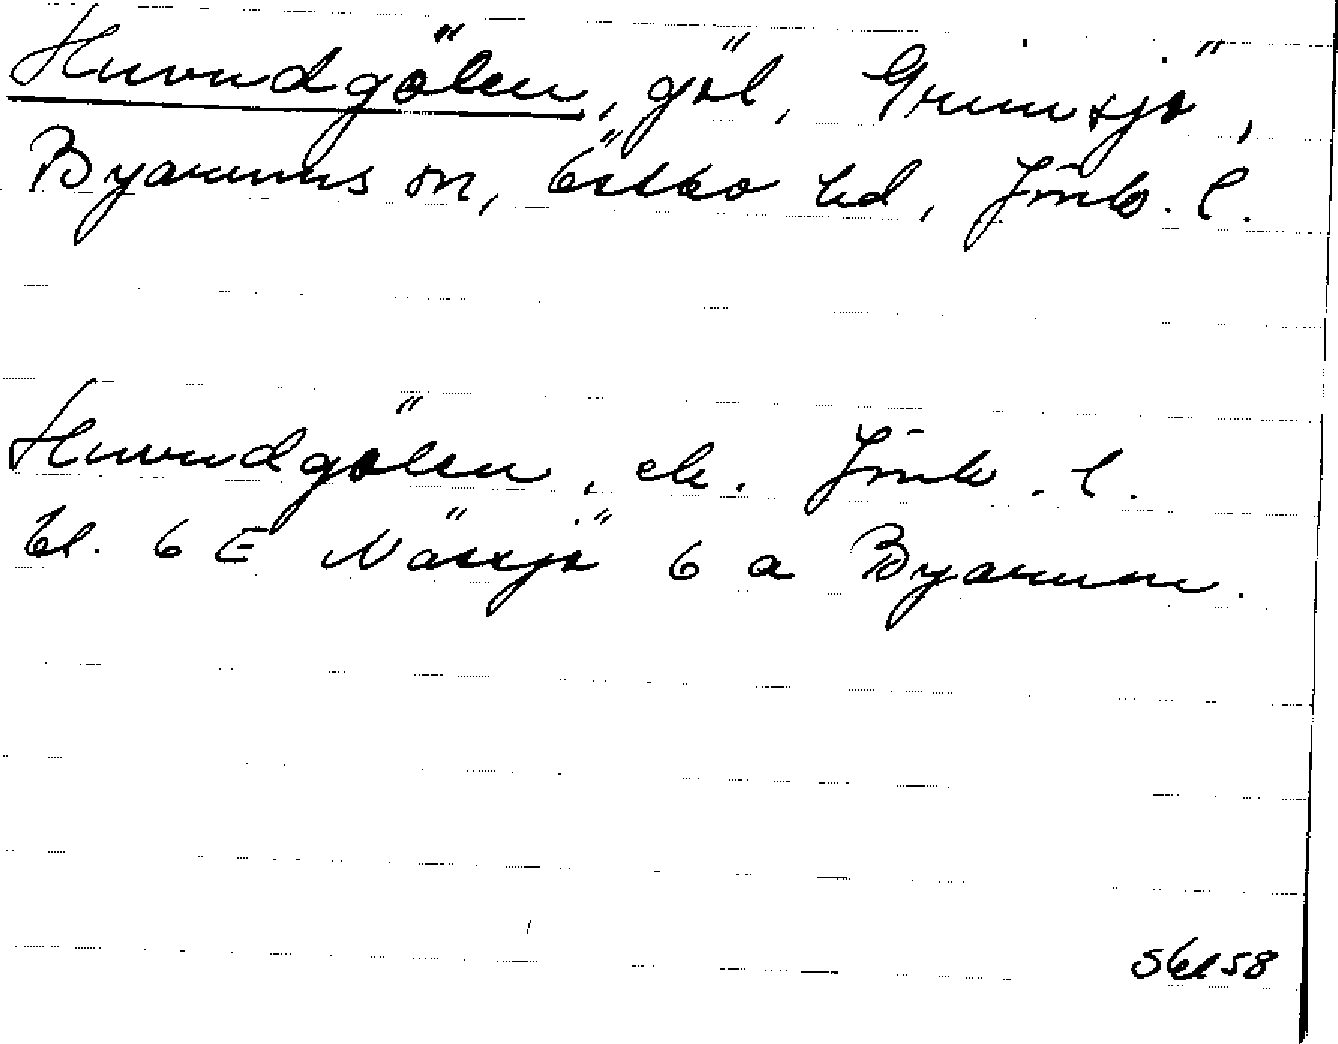 Huvudgölen, göl, Grimsjö,
Byarums sn, Östbo hd, Jmk. l.
Huvudgölen, ek. Jmk. l.
bl. 6 E Nässjö 6 a Byarum.